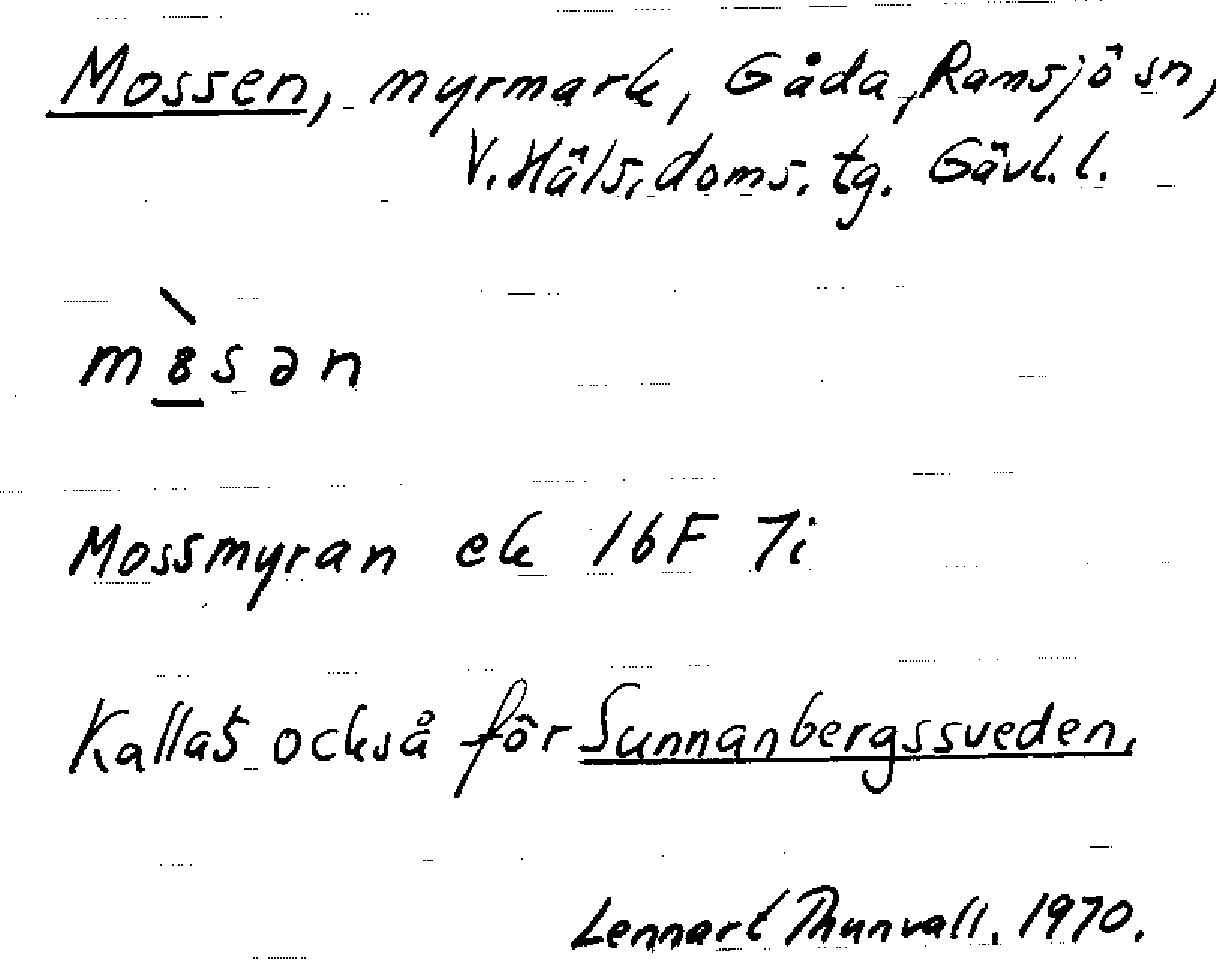 Mossen, myrmark, Gåda, Ramsjö sn,
V. Häls. doms. tg. Gävl. l.
m8̲̀sən
Mossmyran ek 16F 7i
Kallas också för Sunnanbergssveden.
Lennart Thunvall. 1970.